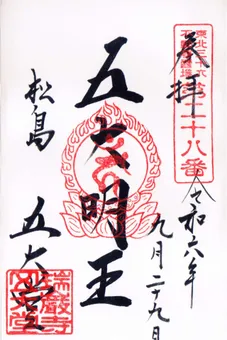 奉拝
二十八番
令和六年
九月二十九日
五大明王
松島
五大堂
瑞巌寺
五大堂